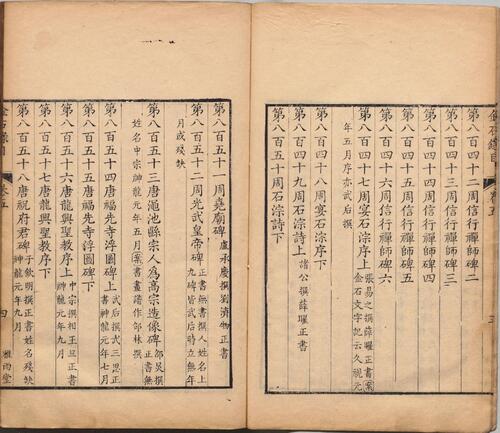 第八百四十二周信行禪師碑二
第八百四十三周信行禪師碑三
第八百四十四周信行禪師碑四
第八百四十五周信行禪師碑五
第八百四十六周信行禪師碑六
第八百四十七周宴石淙序上張易之撰薛曜正書案金石文字記云久視元
年五月序亦武后撰
第八百四十八周宴石淙序下
第八百四十九周石淙詩上諸公撰薛曜正書
第八百五十周石淙詩下
第八百五十一周堯廟碑盧承慶撰劉濟物正書
第八百五十二周光武皇帝碑正書無書撰人姓名上九碑皆武后時立無年
月或殘缺
第八百五十三唐澠池縣宗人為高宗造像碑邵炅撰正書無
姓名中宗神龍元年五月案書畫譜作邠林撰
第八百五十四唐福先寺浮圖碑上武后撰武三思正書神龍元年七月
第八百五十五唐福先寺浮圖碑下
第八百五十六唐龍興聖教序上中宗撰相王旦正書神龍元年九月
第八百五十七唐龍興聖教序下
第八百五十八唐祝府君碑子欽明撰正書姓名殘缺神龍元年九月
卷五
四
雅雨堂